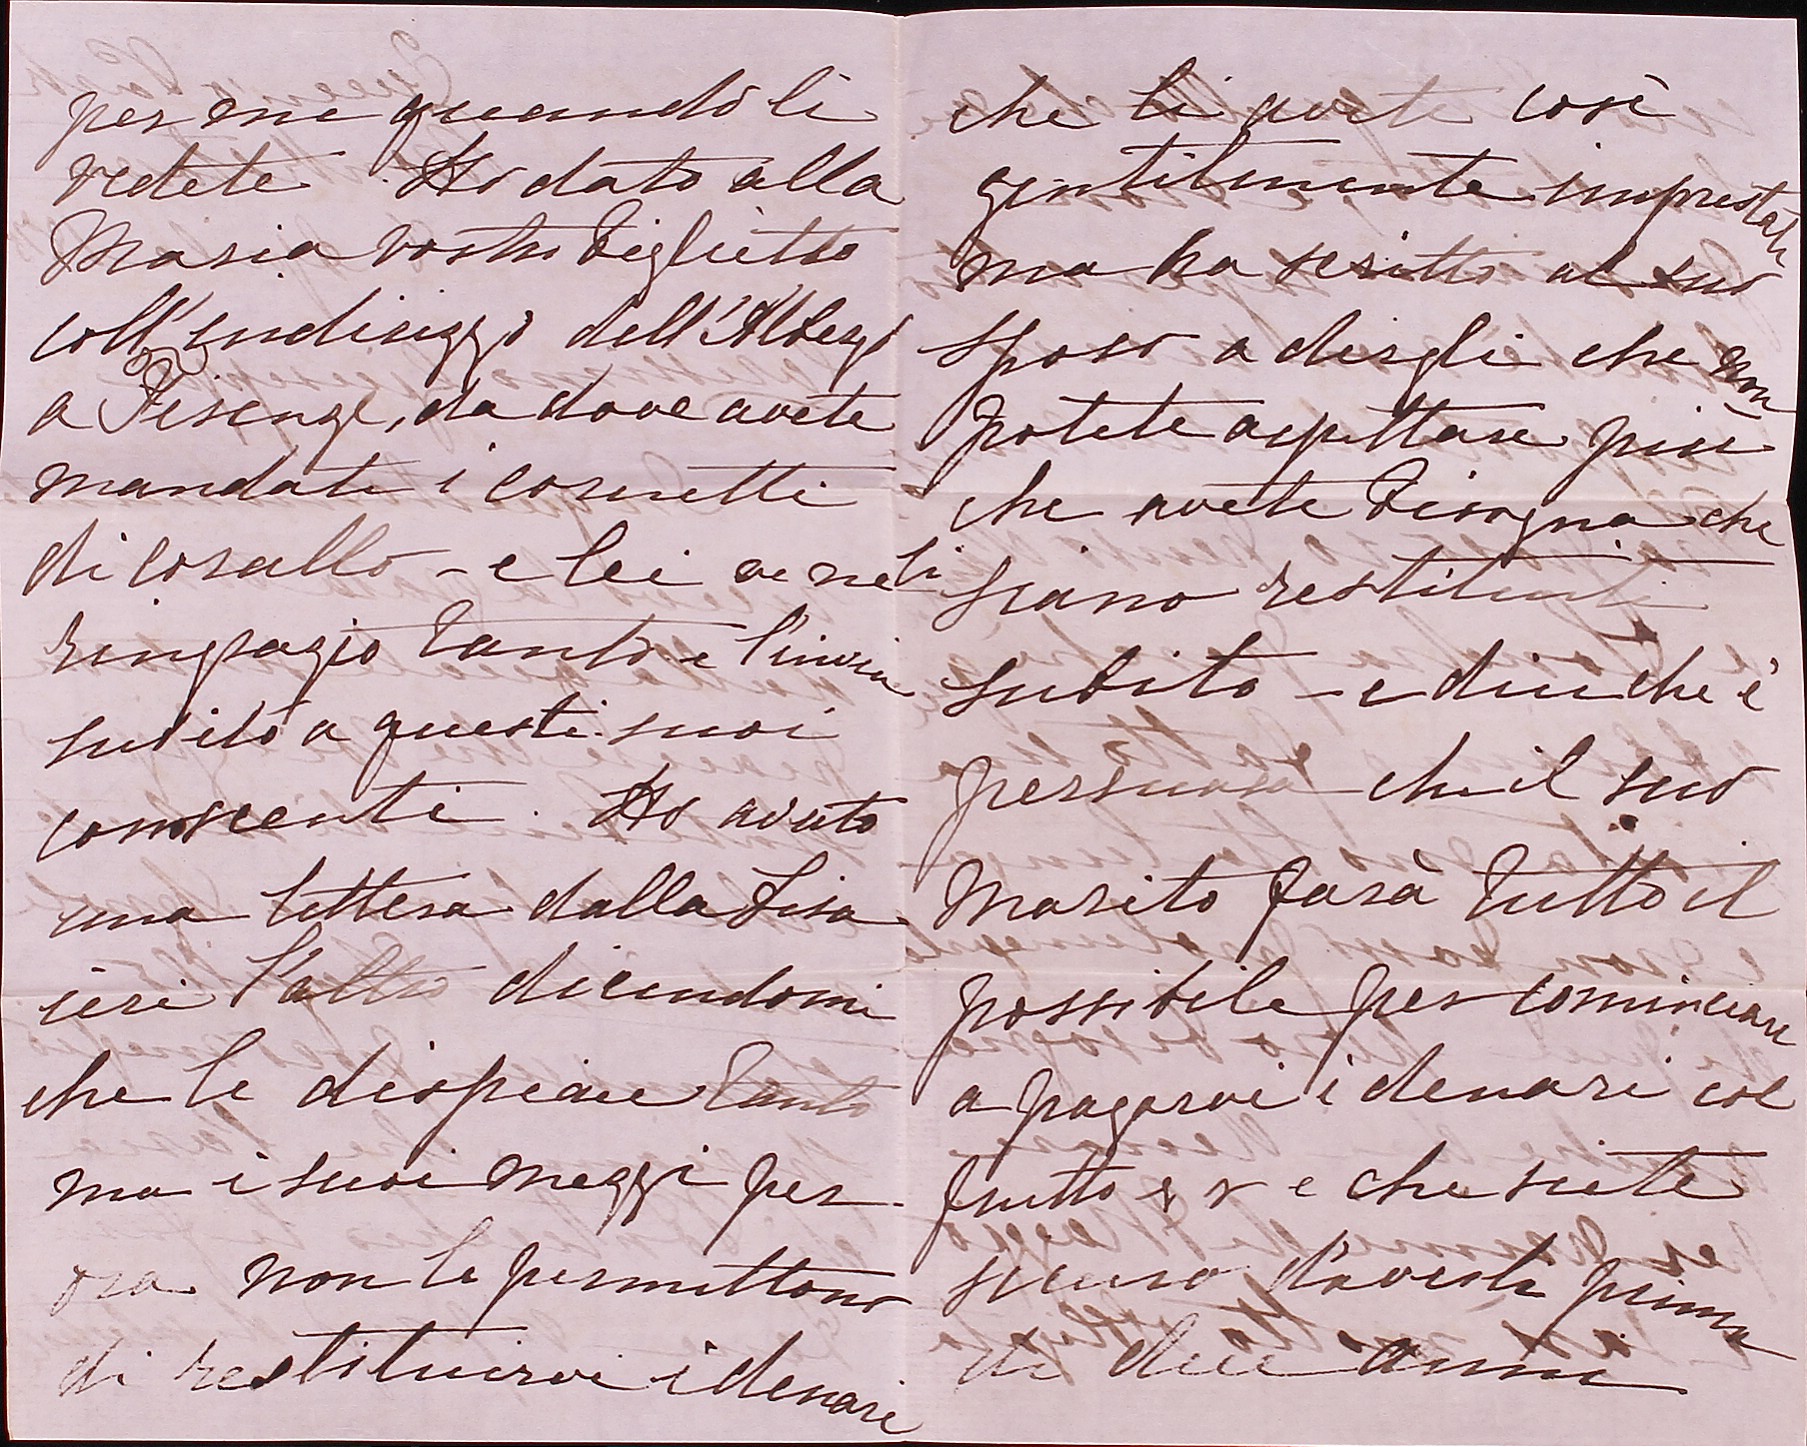 per me quando li
vedete. Ho dato alla
Maria vostro biglietto
coll'indirizzo dell'Albergo
a Firenze, da dove avete
mandate i cornetti
di corallo - e lei ve ne li
ringrazio tanto e l'invia
subito a questi suoi
conoscenti. Ho avuto
una lettera dalla Lisa
ieri l'altro dicendomi
che le dispiace tanto
ma i suoi mezzi per
ora non le permettono
di restituirvi i denari
che li avete così
gentilmente imprestati
ma ha scritto al suo
sposo a dirgli che non
potete aspettare più
che avete bisogna che
siano restituiti
subito - e dice che è
persuasa che il suo
Marito farà tutto il
possibile per cominciare
a pagarvi i denari col
frutto e che siete
sicuro d'averli prima
di due anni